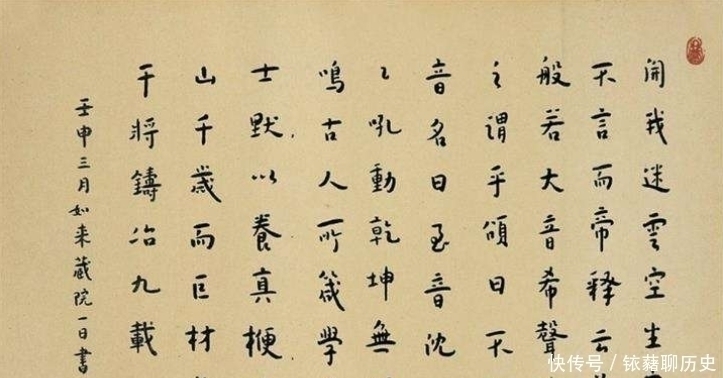 開我迷雲空生
不言而帝釋云
般若大音希聲
之謂乎頌曰不
音名曰至音沈
之吼動乾坤無
鳴古人所箴學
士默以養真楩
山千歲而巨材
干將鑄冶九載
壬申三月如来藏院一日書
快传号/铱蕏聊历史